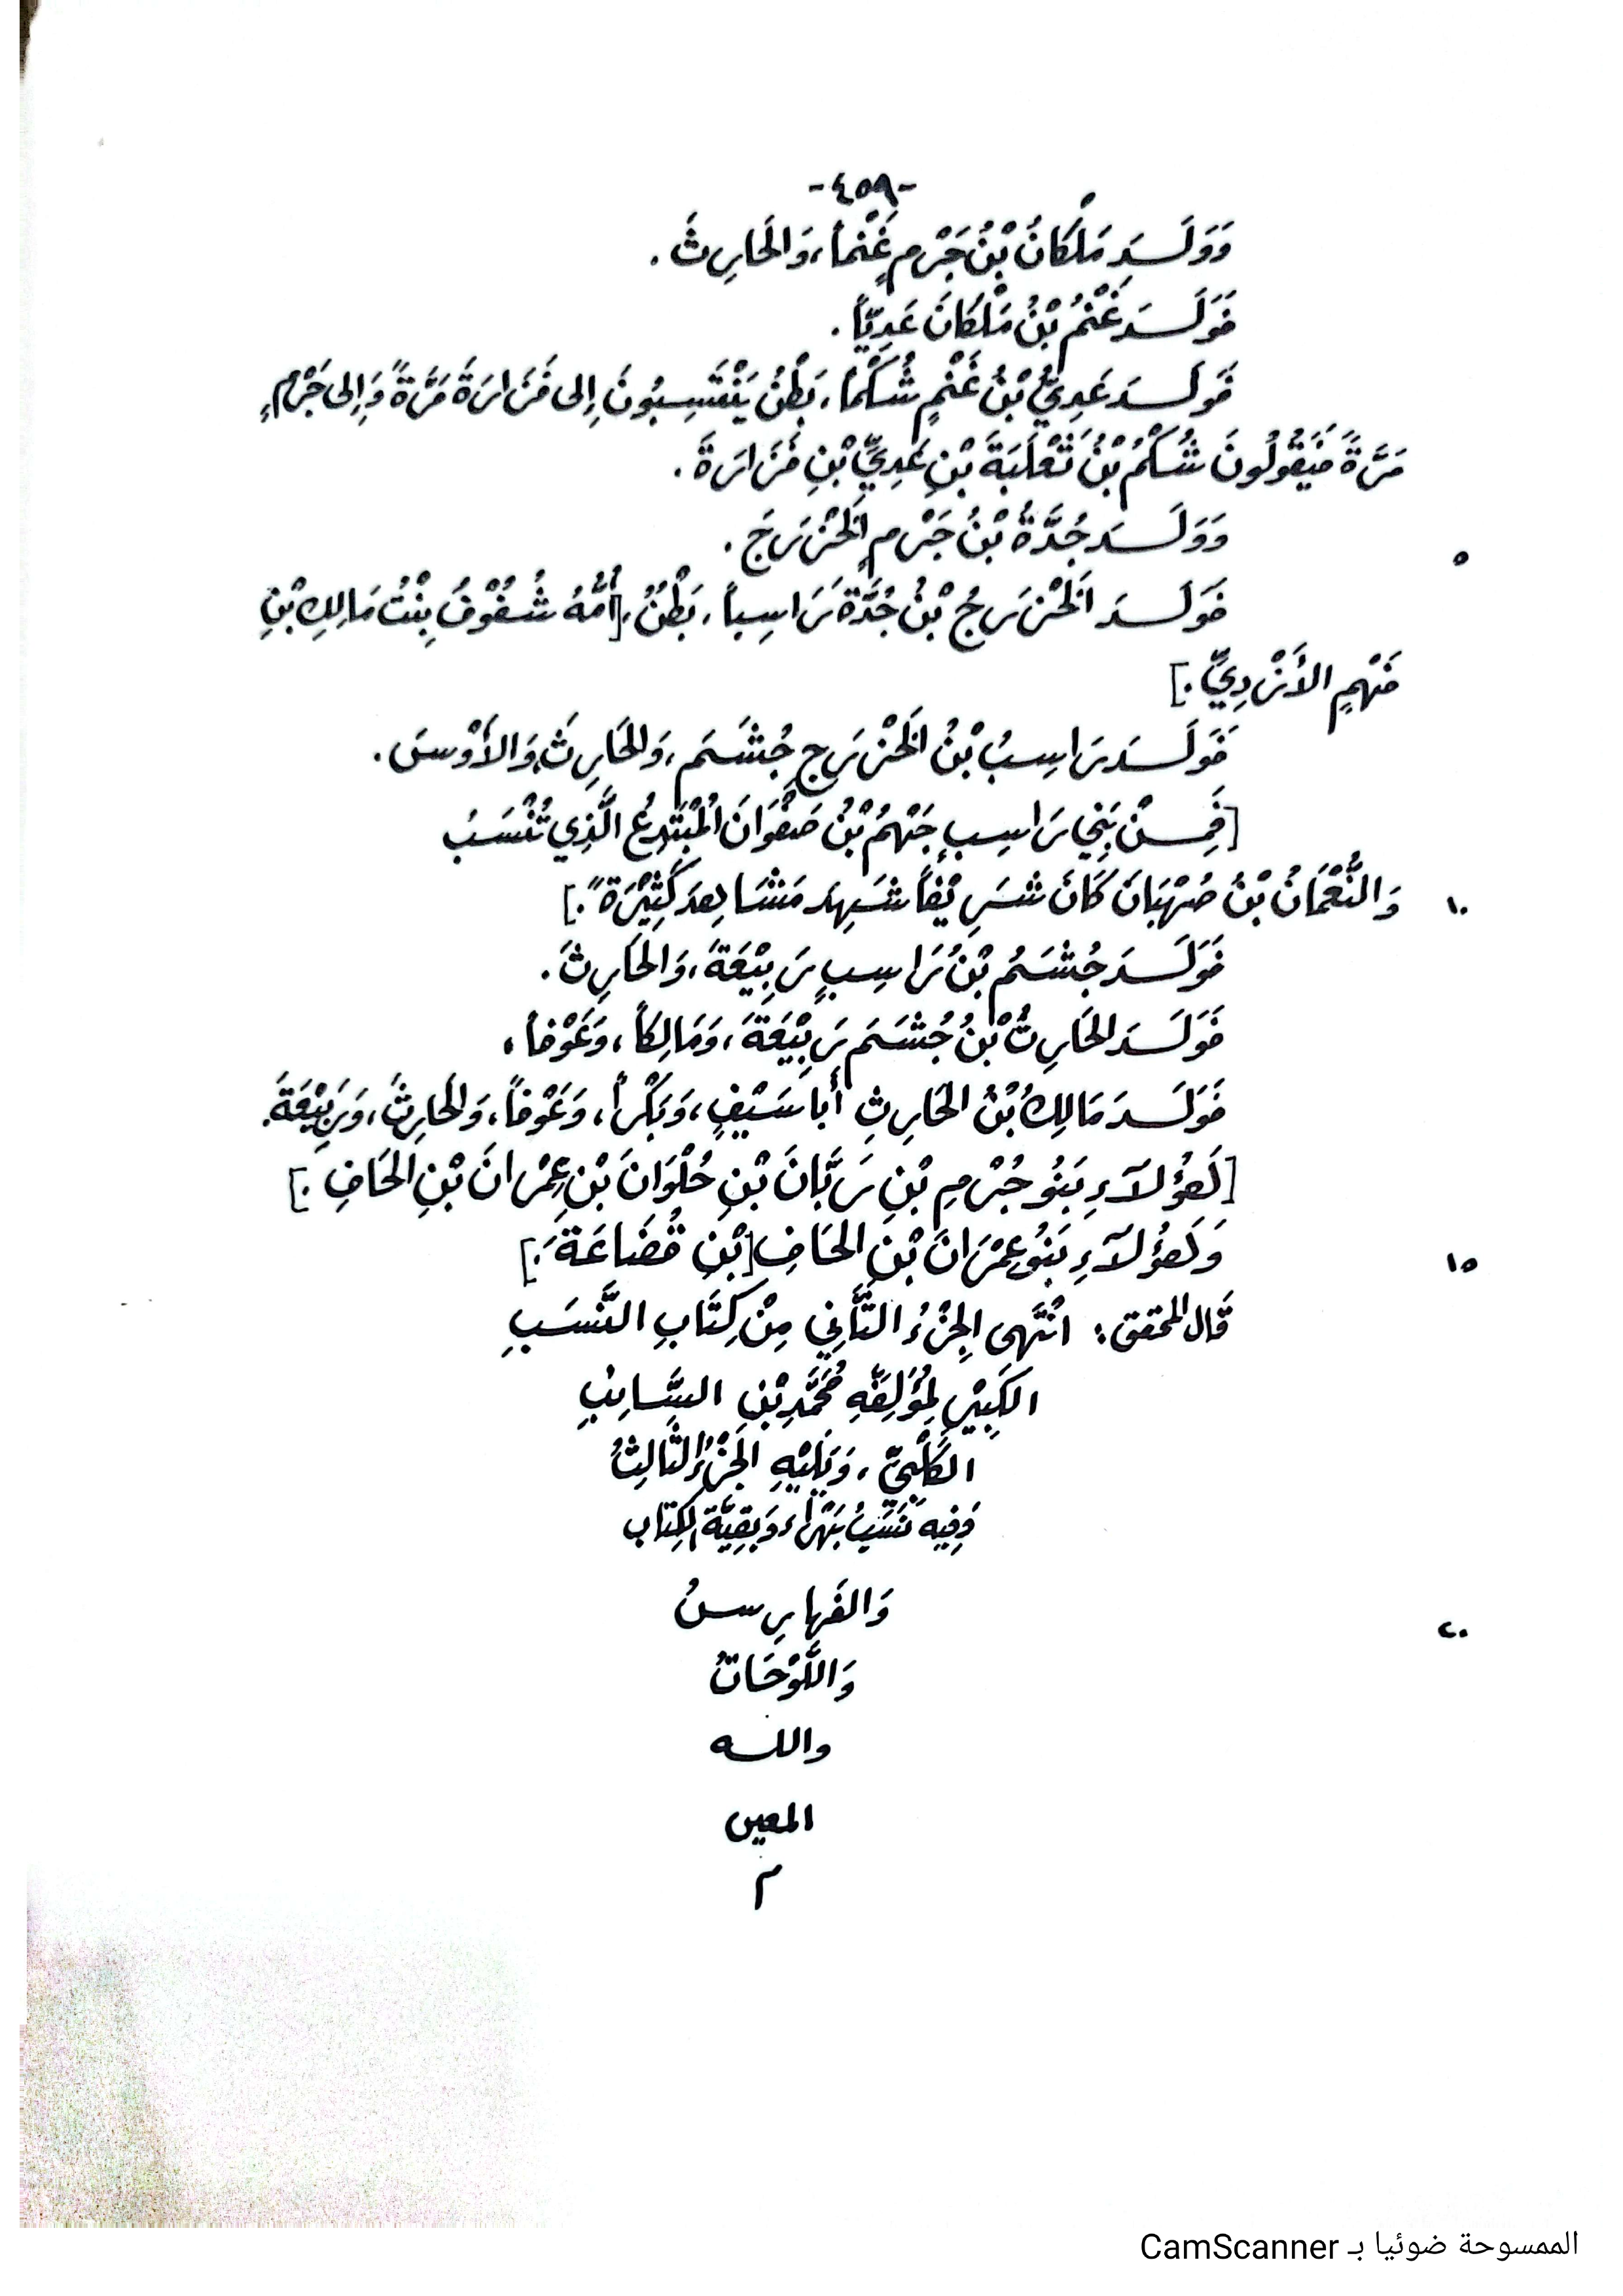 -٤٥٩-
وَوَلَـدَ مَلْكَانُ بْنُ جَرْمٍ غَنْماً، وَالحَارِثَ .
فَوَلَـدَ غَنْمُ بْنُ مَلْكَانَ عَدِيّاً .
فَوَلَـدَ عَدِيُّ بْنُ غَنْمٍ شُكْماً، بَطْنٌ يَنْتَسِبُونَ إِلى فَزَارَةَ مَرَّةً وَإِلى جَرْمٍ
مَرَّةً فَيَقُولُونَ شُكْمُ بْنُ ثَعْلَبَةَ بْنِ عَدِيِّ بْنِ فَزَارَةَ .
وَوَلَـدَ جُدَّةُ بْنُ جَرْمٍ الخَزْرَجَ .
٥
فَوَلَـدَ الخَزْرَجُ بْنُ جُدَّةَ رَاسِباً، بَطْنٌ، [أُمُّهُ شُقُوْفُ بِنْتُ مَالِكِ بْنِ
فَهْمٍ الأَزْدِيِّ.]
فَوَلَـدَ رَاسِبُ بْنُ الخَزْرَجِ جُشَمَ، وَالحَارِثَ، وَالأَوْسَ .
[فَمِـنْ بَنِي رَاسِبٍ جَهْمُ بْنُ صَفْوَانَ المُبْتَدِعُ الَّذِي تُنْسَبُ
وَالنُّعْمَانُ بْنُ صُهْبَانَ كَانَ شَرِيْفاً شَهِدَ مَشَاهِدَ كَثِيْرَةً.]
١٠
فَوَلَـدَ جُشَمُ بْنُ رَاسِبٍ رَبِيْعَةَ، وَالحَارِثَ .
فَوَلَـدَ الحَارِثُ بْنُ جُشَمَ رَبِيْعَةَ، وَمَالِكاً، وَعَوْفاً،
فَوَلَـدَ مَالِكُ بْنُ الحَارِثِ أَبا سَيْفٍ، وَبَكْراً، وَعَوْفاً، وَالحَارِثَ، وَرَبِيْعَةَ.
[هَؤُلَآءِ بَنُو جُرْمِ بْنِ رَبَّانَ بْنِ حُلْوَانَ بْنِ عِمْرَانَ بْنِ الحَافِ .]
وَهَؤُلَآءِ بَنُو عِمْرَانَ بْنِ الحَافِ [بْنِ قُضَاعَةَ.]
١٥
قَالَ المحقق: انْتَهَى الجُزْءُ الثَّانِي مِنْ كِتَابِ النَّسَبِ
الكَبِيْرِ لِمُؤَلِّفِهِ مُحَمَّدِ بْنِ السَّائِبِ
الكَلْبِيِّ، وَيَلِيْهِ الجُزْءُ الثَّالِثُ
وَفِيهِ نَسَبُ بَهْرَاءَ وَبَقِيَّةُ الكِتَاب
وَالفَهَارِسُ
٢٠
وَاللَّوْحَاتُ
واللـه
المعين
م
الممسوحة ضوئيا بـ CamScanner